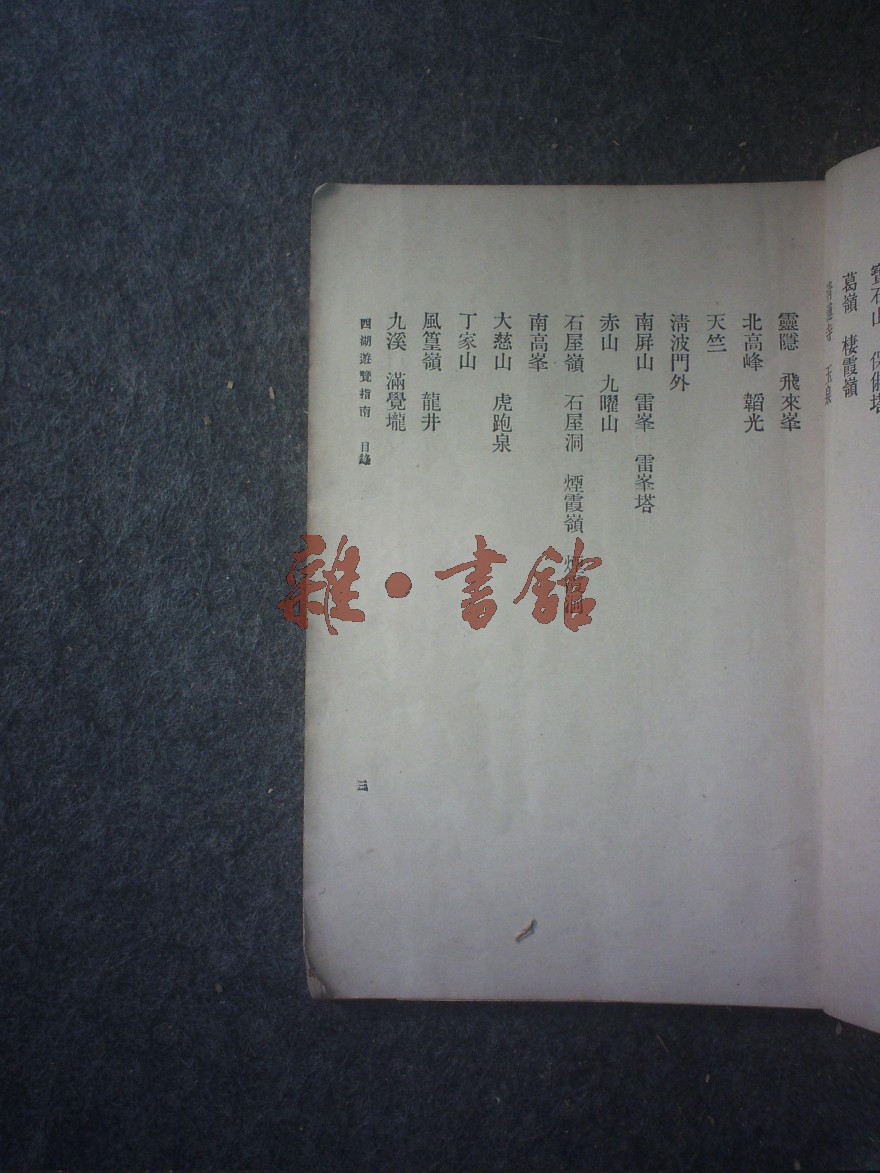 寶石山　保俶塔
葛嶺　棲霞嶺
靈隱　飛來峯
北高峰　韜光
天竺
清波門外
南屏山　雷峯　雷峯塔
赤山　九曜山
石屋嶺　石屋洞　煙霞嶺　煙霞洞
南高峯
大慈山　虎跑泉
丁家山
風篁嶺　龍井
九溪　滿覺壠
西湖遊覽指南　目錄
三
雜·書館